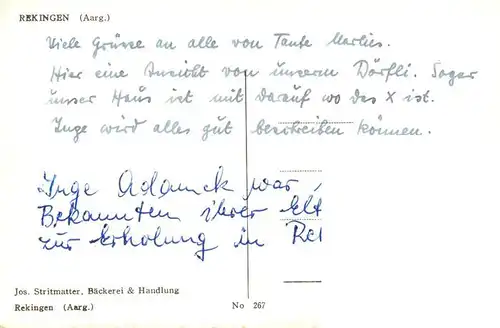 REKINGEN (Aarg.)
Viele Grüsse an alle von Tante Marlies.
Hier eine Ansicht von unserm Dörfli. Sogar
unser Haus ist mit darauf wo das X ist.
Inge wird alles gut beschreiben können.
Inge Adamek war
Bekannten ihrer Elt
zur Erholung in Rei
Jos. Stritmatter, Bäckerei & Handlung
Rekingen (Aarg.)
No 267